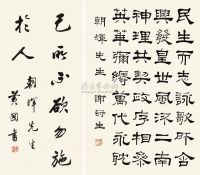 民生而志詠歌所含
興發皇世風流二南
神理共契政序相參
英華彌縟萬代永耽
朝暉先生
己所不欲勿施
於人
朝暉先生
黃國書